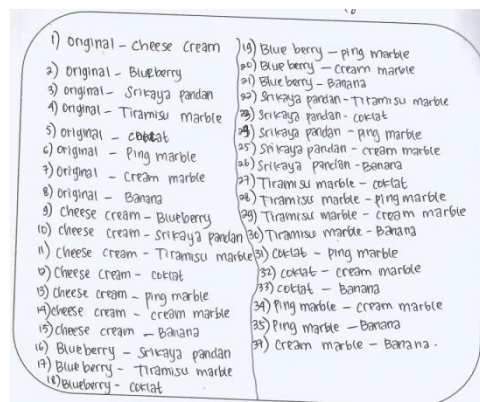 1) Original - Cheese Cream
2) Original - Blueberry
3) Original - Srikaya pandan
4) Original - Tiramisu marble
5) Original - coklat
6) Original - Ping marble
7) Original - Cream marble
8) Original - Banana
9) Cheese cream - Blueberry
10) cheese cream - Srikaya pandan
11) Cheese cream - Tiramisu marble
12) Cheese cream - coklat
13) Cheese cream - ping marble
14) cheese cream - cream marble
15) cheese cream - Banana
16) Blueberry - Srikaya pandan
17) Blueberry - Tiramisu marble
18) Blueberry - Coklat
19) Blue berry - ping marble
20) Blue berry - cream marble
21) Blueberry - Banana
22) Srikaya pandan - Tiramisu marble
23) Srikaya pandan - coklat
24) Srikaya pandan - ping marble
25) Srikaya pandan - cream marble
26) Srikaya pandan - Banana
27) Tiramisu marble - coklat
28) Tiramisu marble - ping marble
29) Tiramisu marble - cream marble
30) Tiramisu marble - Banana
31) Coklat - ping marble
32) coklat - cream marble
33) coklat - Banana
34) Ping marble - cream marble
35) Ping marble - Banana
) Cream marble - Banana.